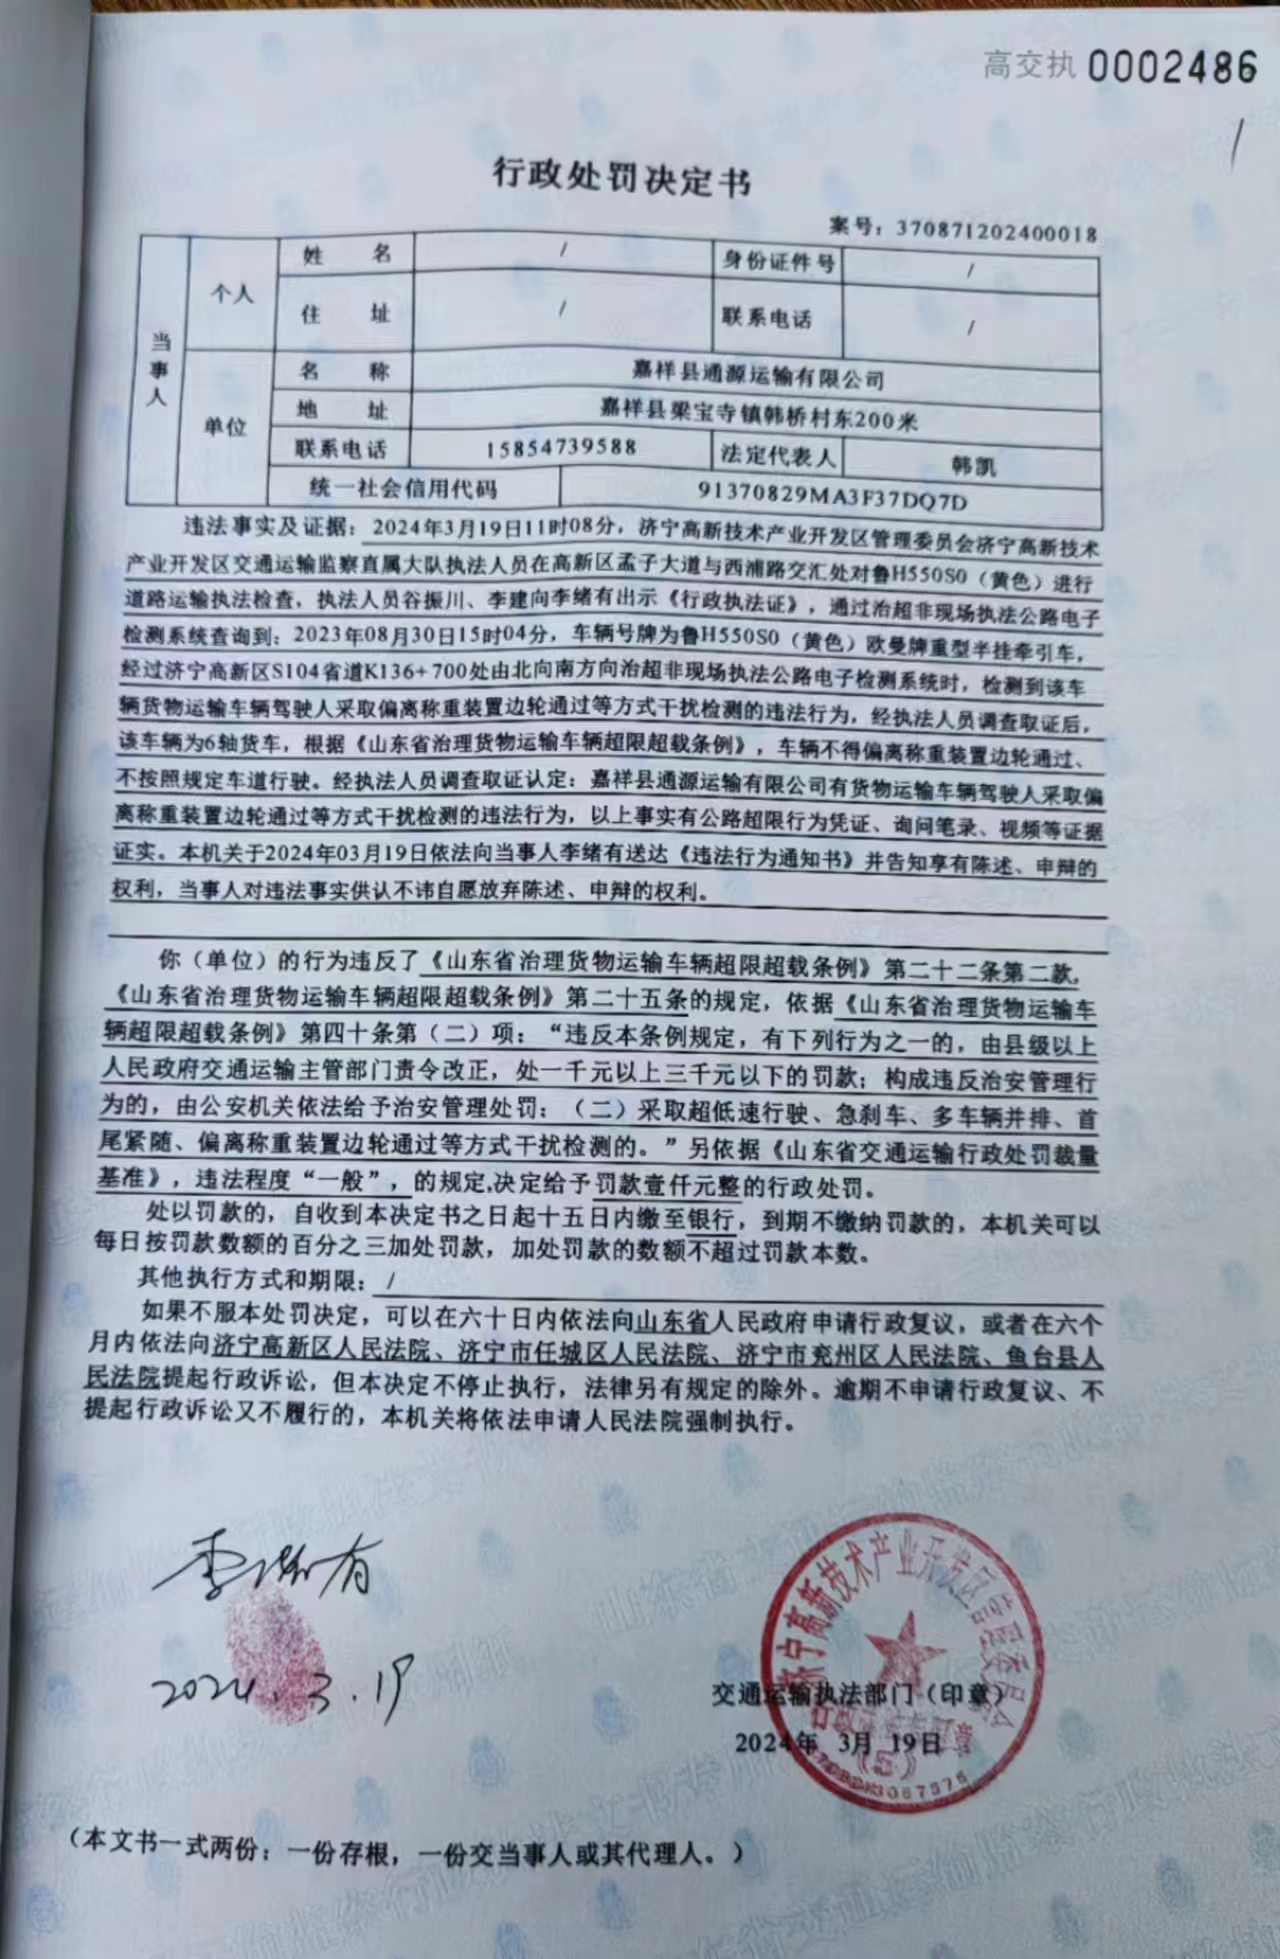 高交执 0002486
行政处罚决定书
案号：370871202400018
当事人
个人
姓 名 /
身份证件号 /
住 址 /
联系电话 /
单位
名 称 嘉祥县通源运输有限公司
地 址 嘉祥县梁宝寺镇韩桥村东200米
联系电话 15854739588 法定代表人 韩凯
统一社会信用代码 91370829MA3F37DQ7D
违法事实及证据：2024年3月19日11时08分，济宁高新技术产业开发区管理委员会济宁高新技术
产业开发区交通运输监察直属大队执法人员在高新区孟子大道与西浦路交汇处对鲁H550S0（黄色）进行
道路运输执法检查，执法人员谷振川、李建向李绪有出示《行政执法证》，通过治超非现场执法公路电子
检测系统查询到：2023年08月30日15时04分，车辆号牌为鲁H550S0（黄色）欧曼牌重型半挂牵引车，
经过济宁高新区S104省道K136+700处由北向南方向治超非现场执法公路电子检测系统时，检测到该车
辆货物运输车辆驾驶人采取偏离称重装置边轮通过等方式干扰检测的违法行为，经执法人员调查取证后，
该车辆为6轴货车，根据《山东省治理货物运输车辆超限超载条例》，车辆不得偏离称重装置边轮通过、
不按照规定车道行驶。经执法人员调查取证认定：嘉祥县通源运输有限公司有货物运输车辆驾驶人采取偏
离称重装置边轮通过等方式干扰检测的违法行为，以上事实有公路超限行为凭证、询问笔录、视频等证据
证实。本机关于2024年03月19日依法向当事人李绪有送达《违法行为通知书》并告知享有陈述、申辩的
权利，当事人对违法事实供认不讳自愿放弃陈述、申辩的权利。
你（单位）的行为违反了《山东省治理货物运输车辆超限超载条例》第二十二条第二款，
《山东省治理货物运输车辆超限超载条例》第二十五条的规定，依据《山东省治理货物运输车
辆超限超载条例》第四十条第（二）项：“违反本条例规定，有下列行为之一的，由县级以上
人民政府交通运输主管部门责令改正，处一千元以上三千元以下的罚款；构成违反治安管理行
为的，由公安机关依法给予治安管理处罚：（二）采取超低速行驶、急刹车、多车辆并排、首
尾紧随、偏离称重装置边轮通过等方式干扰检测的。”另依据《山东省交通运输行政处罚裁量
基准》，违法程度“一般”，的规定,决定给予罚款壹仟元整的行政处罚。
处以罚款的，自收到本决定书之日起十五日内缴至银行，到期不缴纳罚款的，本机关可以
每日按罚款数额的百分之三加处罚款，加处罚款的数额不超过罚款本数。
其他执行方式和期限：/
如果不服本处罚决定，可以在六十日内依法向山东省人民政府申请行政复议，或者在六个
月内依法向济宁高新区人民法院、济宁市任城区人民法院、济宁市兖州区人民法院、鱼台县人
民法院提起行政诉讼，但本决定不停止执行，法律另有规定的除外。逾期不申请行政复议、不
提起行政诉讼又不履行的，本机关将依法申请人民法院强制执行。
李绪有
2024.3.19
济宁高新技术产业开发区管理委员会
交通运输执法部门（印章）
2024年 3月 19日
（5）
（本文书一式两份：一份存根，一份交当事人或其代理人。）